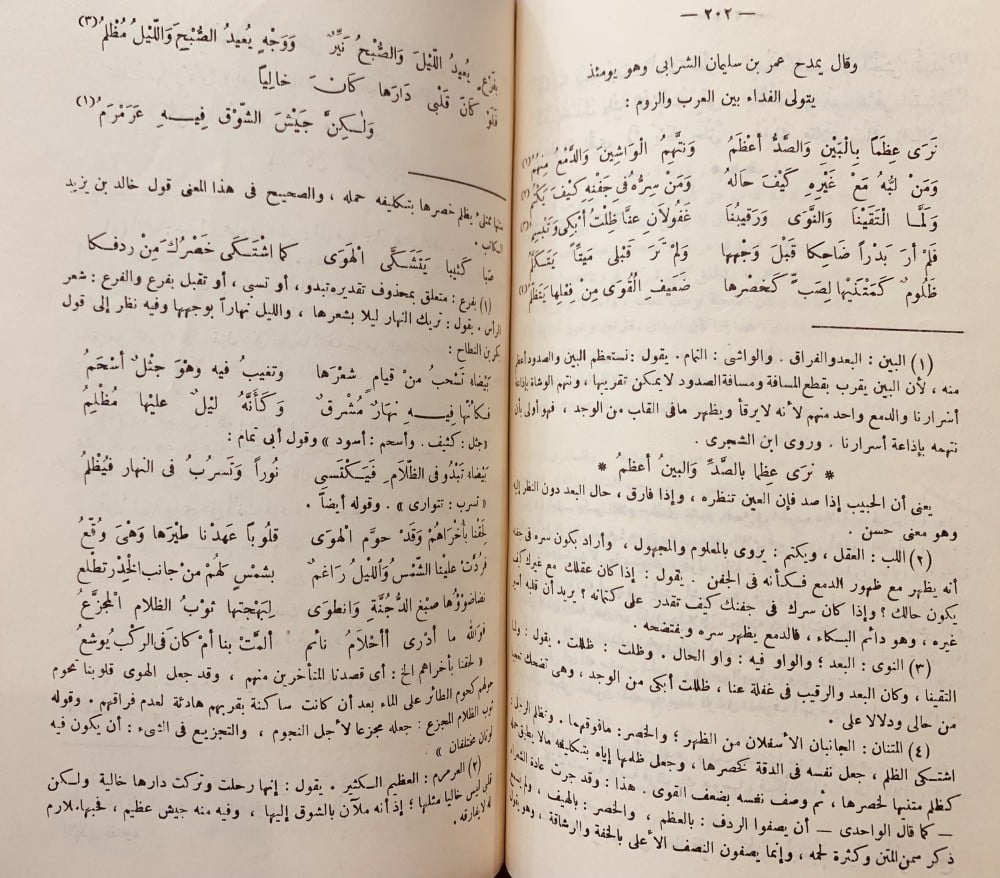 — ٢٠٢ —
وقال يمدح عمر بن سليمان الشرابى وهو يومئذ
يتولى الفداء بين العرب والروم :
نَرَى عِظَمًا بِالْبَيْنِ وَالصَّدُّ أَعْظَمُ وَنَتَّهِمُ الْوَاشِينَ وَالدَّمْعُ مِنْهُمُ (١)
وَمَنْ لُبُّهُ مَعْ غَيْرِهِ كَيْفَ حَالُهُ وَمَنْ سِرُّهُ فِى جَفْنِهِ كَيْفَ يَكْتُمُ (٢)
وَلَمَّا الْتَقَيْنَا وَالنَّوَى وَرَقِيبُنَا غَفُولَانِ عَنَّا ظَلْتُ أَبْكِى وَتَبْسِمُ (٣)
فَلَمْ أَرَ بَدْرًا ضَاحِكًا قَبْلَ وَجْهِهَا وَلَمْ تَرَ قَبْلِى مَيِّتًا يَتَكَلَّمُ
ظَلُومٌ كَمَتْنَيْهَا لِصَبٍّ كَخَصْرِهَا ضَعِيفِ الْقُوَى مِنْ فِعْلِهَا يَتَظَلَّمُ (٤)
(١) البين : البعد والفراق . والواشى : النمام . يقول : نستعظم البين والصدود أعظم
منه ، لأن البين يقرب بقطع المسافة ومسافة الصدود لا يمكن تقريبها ، ونتهم الوشاة بإذاعة
أسرارنا والدمع واحد منهم لأنه لا يرقأ ويظهر مافى القلب من الوجد ، فهو أولى بأن
نتهمه بإذاعة أسرارنا . وروى ابن الشجرى .
* نرَى عِظما بالصَّدِّ وَالبينُ أعظمُ *
يعنى أن الحبيب إذا صد فإن العين تنظره ، وإذا فارق ، حال البعد دون النظر إليه
وهو معنى حسن .
(٢) اللب : العقل ، ويكتم : يروى بالمعلوم والمجهول ، وأراد بكون سره فى جفنه
أنه يظهر مع ظهور الدمع فكأنه فى الجفن . يقول : إذا كان عقلك مع غيرك كيف
يكون حالك ؟ وإذا كان سرك فى جفنك كيف تقدر على كتمانه ؟ يريد أن قلبه أسير
غيره ، وهو دائم البكاء ، فالدمع يظهر سره ويفتضحه .
(٣) النوى : البعد ؛ والواو فيه : واو الحال . وظلت : ظللت . يقول : ولما
التقينا ، وكان البعد والرقيب فى غفلة عنا ، ظللت أبكى من الوجد ، وهى تضحك تعجبا
من حالى ودلالا على .
(٤) المتنان : الجانبان الأسفلان من الظهر ؛ والخصر : مافوقهما . وتظلم الرجل :
اشتكى الظلم ، جعل نفسه فى الدقة كخصرها ، وجعل ظلمها إياه بتكليفه مالا يطيق حمله
كظلم متنيها لخصرها ، ثم وصف نفسه بضعف القوى . هذا : وقد جرت عادة الشعراء
— كما قال الواحدى — أن يصفوا الردف : بالعظم ، والخصر : بالهيف ، ولم
ذكر سمن المتن وكثرة لحمه ، وإنما يصفون النصف الأعلى بالخفة والرشاقة ، وهو يقول
بِفَرْعٍ يُعِيدُ اللَّيْلَ وَالصُّبْحُ نَيِّرٌ وَوَجْهٍ يُعِيدُ الصُّبْحَ وَاللَّيْلُ مُظْلِمُ (٣)
فَلَوْ كَانَ قَلْبِى دَارَهَا كَانَ خَالِيًا
وَلَكِنَّ جَيْشَ الشَّوْقِ فِيهِ عَرَمْرَمُ (١)
متنها ممتلىء يظلم خصرها بتكليفه حمله ، والصحيح فى هذا المعنى قول خالد بن يزيد
الكاتب .
صَبًا كَئيبا يَتَشَكَّى الْهَوَى كما اشْتَكَى خَصْرُكَ مِنْ رِدفكا
(١) بفرع : متعلق بمحذوف تقديره تبدو ، أو تسبى ، أو تقبل بفرع والفرع : شعر
الرأس . يقول : تريك النهار ليلا بشعرها ، والليل نهاراً بوجهها وفيه نظر إلى قول
بكر بن النطاح :
بَيْضاءُ تَسْحَبُ مِنْ قيامٍ شعْرَها وتغيبُ فيه وهوَ جَثْلٌ أسْحَمُ
فكأنَّها فِيهِ نهارٌ مُشْرِقٌ وكَأَنَّهُ ليْلٌ عليْها مُظْلِمُ
«جثل : كثيف . وأسحم : أسود » وقول أبى تمام :
بَيْضاءُ تَبْدُو فى الظّلَامِ فَيَكْتَسى نُوراً وَتَسرُبُ فى النهار فيُظْلمُ
« تسرب : تتوارى » . وقوله أيضاً .
لَحِقْنا بأخْراهُمْ وَقَدْ حوَّم الهْوَى قلوبًا عَهدْنا طيْرَها وَهْىَ وُقّعُ
فرُدَّتْ علينا الشَّمْسُ وَاللَّيلُ رَاغمٌ بشمْسٍ لَهُمْ منْ جانب الْخِدْرِ تطْلُع
نضاضوْؤُها صبْغ الدُّجُنَّةِ وَانطوَى لِبَهْجتِها ثوْبُ الظلام المجزَّعُ
فوَاللهِ ما أدْرى أأحْلامُ نائمٍ ألمَّتْ بنا أمْ كانَ فى الرَّكْب يُوشعُ
« لحقنا بأخراهم الخ : أى قصدنا المتأخرين منهم ، وقد جعل الهوى قلوبنا تحوم
حولهم كحوم الطائر على الماء بعد أن كانت ساكنة بقربهم هادئة لعدم فراقهم . وقوله
ثوب الظلام المجزع : جعله مجزعا لأجل النجوم ، والتجزيع فى الشىء : أن يكون فيه
لونان مختلفان »
(٢) العرمرم : العظيم الكثير . يقول : إنها رحلت وتركت دارها خالية ولكن
قلبى ليس خاليا مثلها ؛ إذ أنه ملآن بالشوق إليها ، وفيه منه جيش عظيم ، فحبها ملازم
له لا يفارقه .